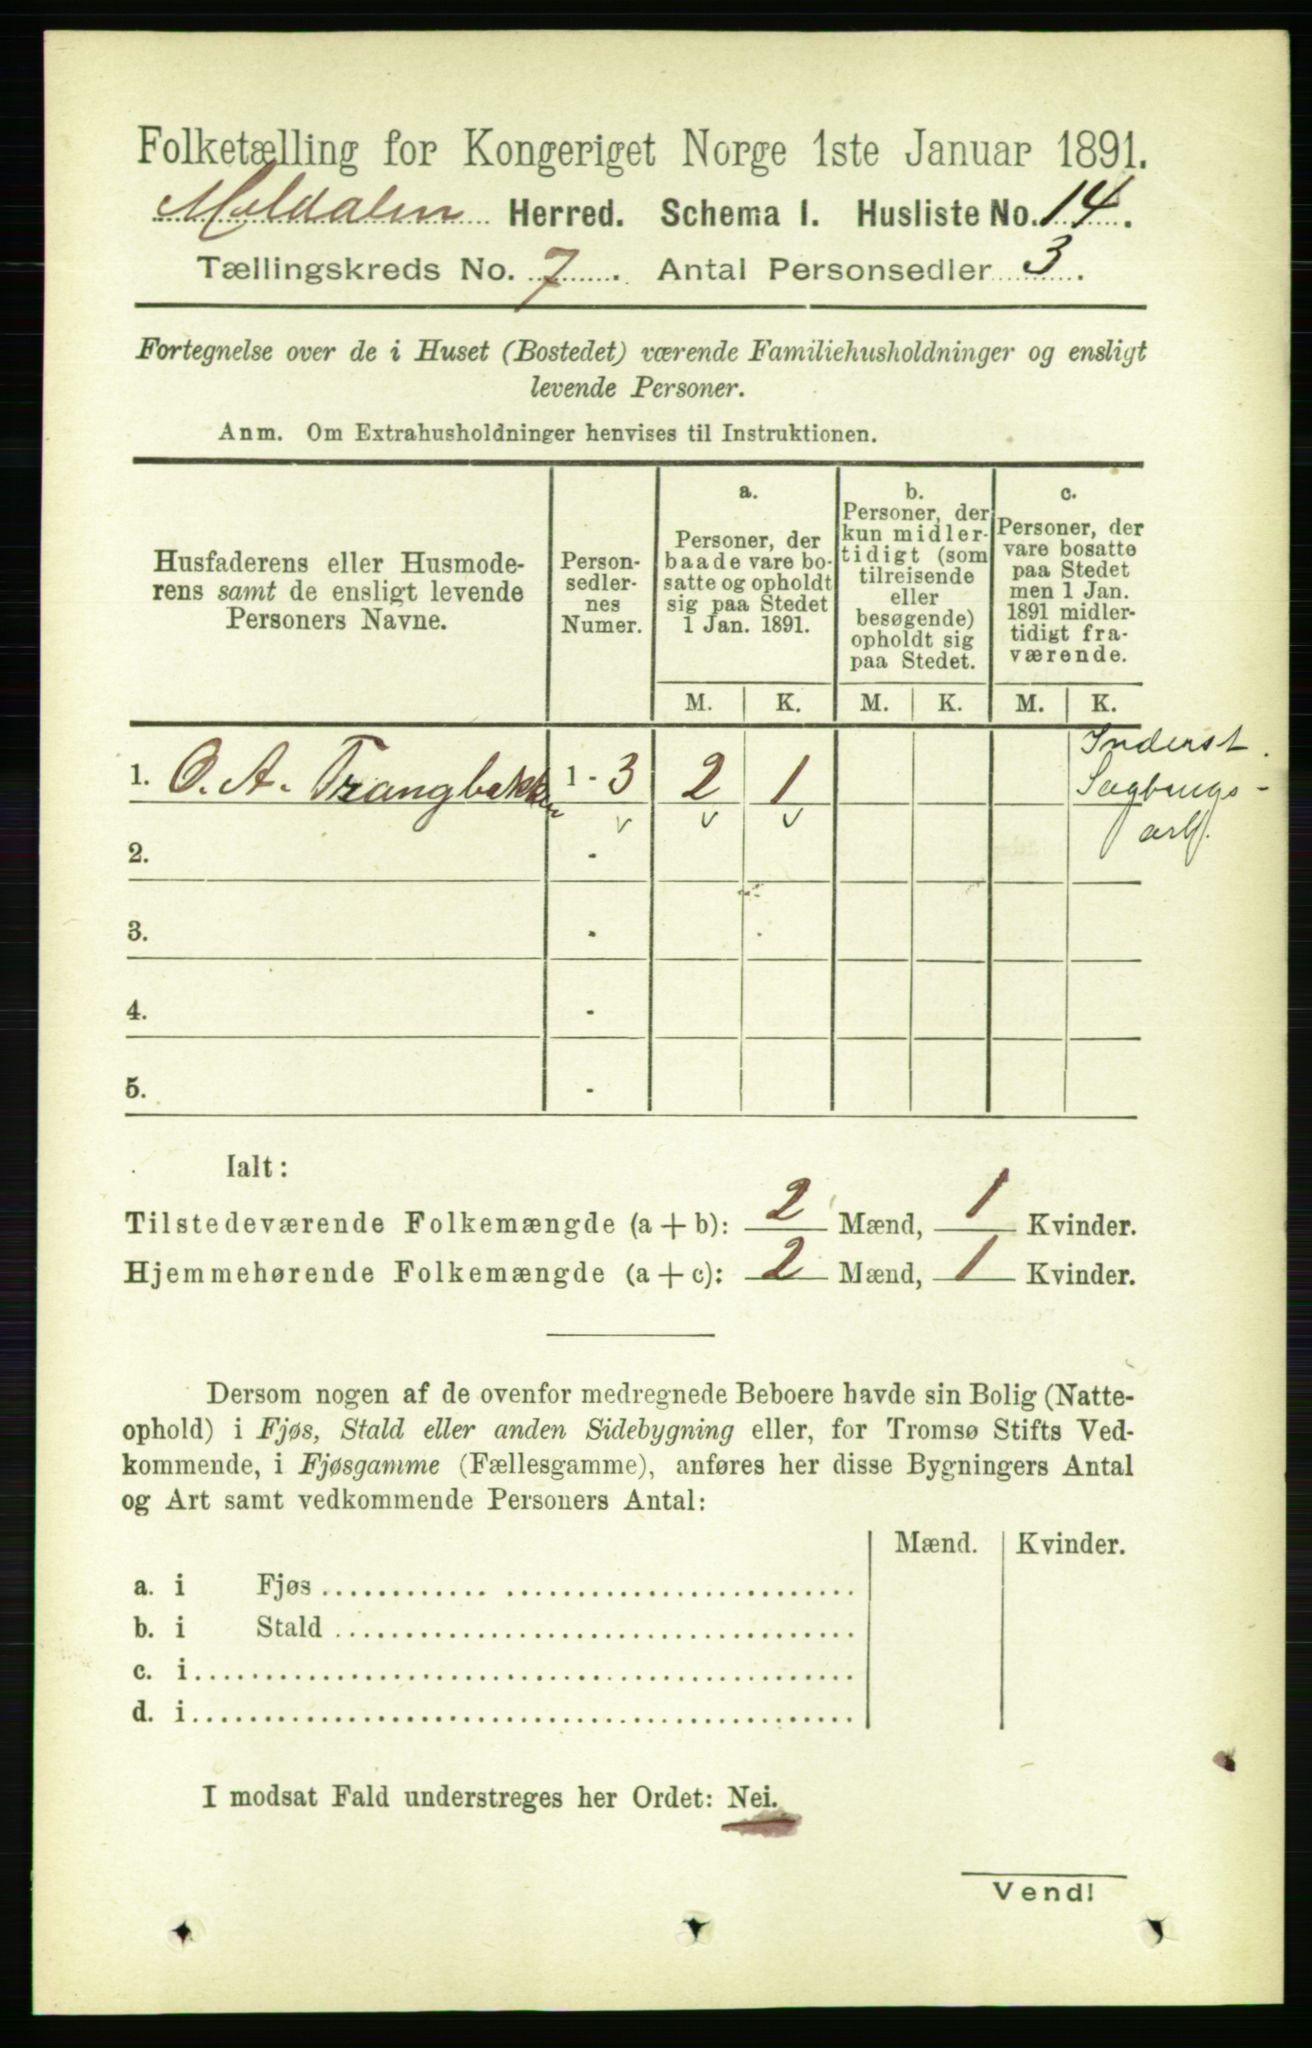 Folketælling for Kongeriget Norge 1ste Januar 1891.
Meldalen Herred. Schema 1. Husliste No. 14.
Tællingskreds No. 7. Antal Personsedler 3.
Fortegnelse over de i Huset (Bostedet) værende Familiehusholdninger og ensligt
levende Personer.
Anm. Om Extrahusholdninger henvises til Instruktionen.
Husfaderens eller Husmode-
rens samt de ensligt levende
Personers Navne.
Person-
sedler-
nes
Numer.
a.
Personer, der
baade vare bo-
satte og opholdt
sig paa Stedet
1 Jan. 1891.
b.
Personer, der
kun midler-
tidigt (som
tilreisende
eller
besøgende)
opholdt sig
paa Stedet.
c.
Personer, der
vare bosatte
paa Stedet
men 1 Jan.
1891 midler-
tidigt fra-
værende.
M. K. M. K. M. K.
1. O. A. Trangbakken 1 - 3 2 1
v v v
Inderst.
Sagbrugs-
arb.
2. -
3. -
4. -
5. -
Ialt:
Tilstedeværende Folkemængde (a + b): 2 Mænd, 1 Kvinder.
Hjemmehørende Folkemængde (a + c): 2 Mænd, 1 Kvinder.
Dersom nogen af de ovenfor medregnede Beboere havde sin Bolig (Natte-
ophold) i Fjøs, Stald eller anden Sidebygning eller, for Tromsø Stifts Ved-
kommende, i Fjøsgamme (Fællesgamme), anføres her disse Bygningers Antal
og Art samt vedkommende Personers Antal:
Mænd. Kvinder.
a. i Fjøs
b. i Stald
c. i
d. i
I modsat Fald understreges her Ordet: Nei.
Vend!